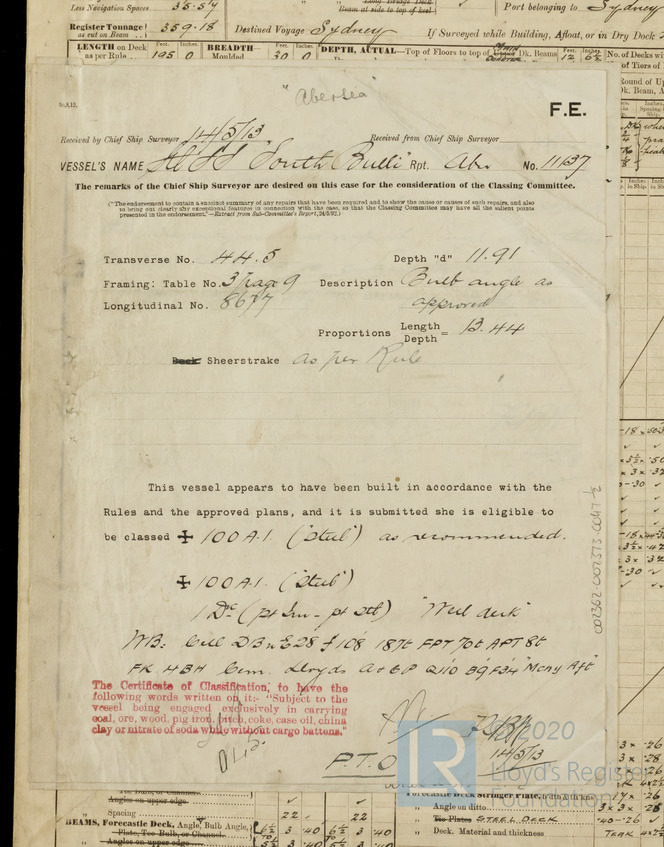 Less Navigation Spaces 35.57
Register Tonnage as cut on Beam 359.18
Destined Voyage Sydney
Port belonging to Sydney
If Surveyed while Building, Afloat, or in Dry Dock
LENGTH on Deck as per Rule Feet. 195 Inches. 0
BREADTH— Moulded Feet. 30 Inches. 0
DEPTH, ACTUAL—Top of Floors to top of Dk. Beams Feet. 12 Inches. 6½
No. of Decks wi
"Abersea"
F.E.
Received by Chief Ship Surveyor 14/5/13
Received from Chief Ship Surveyor
VESSEL'S NAME "South Bulli" Rpt. Abn No. 11637
The remarks of the Chief Ship Surveyor are desired on this case for the consideration of the Classing Committee.
("The endorsement to contain a succinct summary of any repairs that have been required and to show the cause or causes of such repairs, and also
to bring out clearly any exceptional features in connection with the case, so that the Classing Committee may have all the salient points
presented in the endorsement."—Extract from Sub-Committee's Report, 24/5/92.)
Transverse No. 44.5
Depth "d" 11.91
Framing: Table No. 3 page 9
Description Bulb angle as
approved
Longitudinal No. 8677
Proportions Length = 13.44
Depth
Deck Sheerstrake as per Rule
This vessel appears to have been built in accordance with the
Rules and the approved plans, and it is submitted she is eligible to
be classed ✠ 100 A.1. ("Steel") as recommended.
✠ 100 A.1. ("Steel")
1 Dk (pt Irn - pt Stl) "Well deck"
WB: Cell DB 108' 187t FPT 70t APT 8t
FK 4BH Cem. Lloyds A & CP
"Mchy Aft"
The Certificate of Classification, to have the
following words written on it:- "Subject to the
vessel being engaged exclusively in carrying
coal, ore, wood, pig iron, pitch, coke, case oil, china
clay or nitrate of soda while without cargo battens."
14/5/13
P.T.O
002362-002373-0047 ½
2020
Lloyd's Register
Foundation
Angles on upper edge
Spacing 22 22
BEAMS, Forecastle Deck, Angle, Bulb Angle,
Plate, Tee Bulb, or Channel
Angles on upper edge
Forecastle Deck Stringer Plate,
Angle on ditto 3 x 3 x .28
Tie Plates STEEL DECK
Deck. Material and thickness TEAK